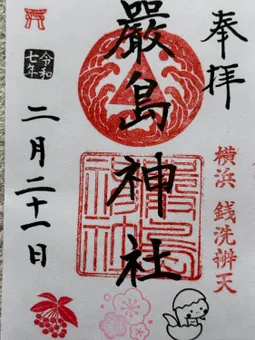 奉拝
嚴島神社
横浜 銭洗辨天
令和
七年
二月二十一日